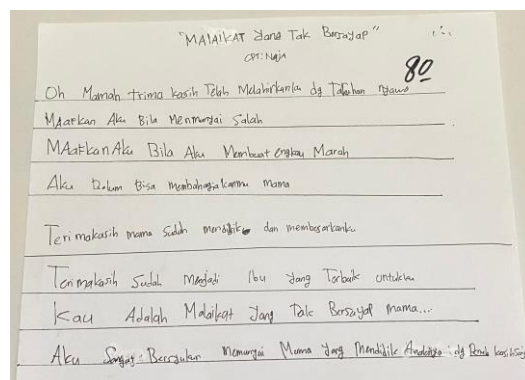 "MALAIKAT Yang Tak Bersayap"
CPT: Naja
80
Oh Mamah trima kasih Telah Melahirkanku dg Taruhan Nyawa
MAafkan Aku Bila Menpunyai Salah
MAafkan Aku Bila Aku Membuat engkau Marah
Aku Belum Bisa membahagiakanmu mama
Terimakasih mama Sudah mendidik dan membesarkanku
Terimakasih Sudah Menjadi Ibu Yang Terbaik untukku
Kau Adalah Malaikat Yang Tak Bersayap mama...
Aku Sangat Bersyukur Mempunyai Mama Yang Mendidik Anaknya dg Penuh kasih